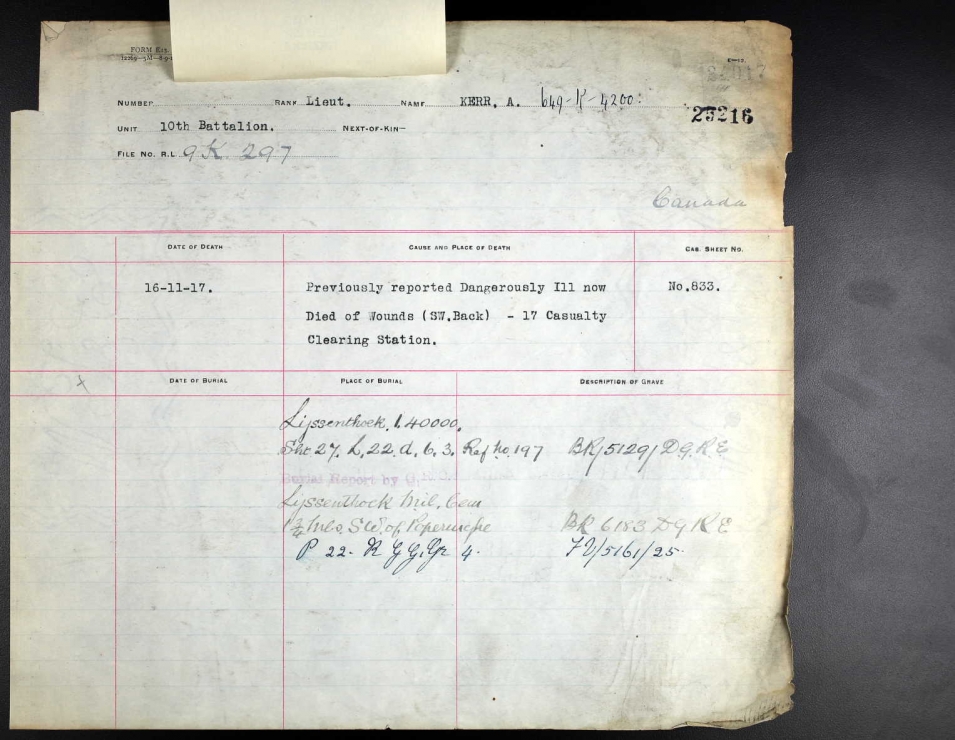 FORM E12.
NUMBER RANK Lieut. NAME KERR, A. 649-K-4200.
25216
UNIT 10th Battalion. NEXT-OF-KIN—
FILE NO. R.L. 9K 297
Canada
DATE OF DEATH CAUSE AND PLACE OF DEATH CAS. SHEET NO.
16-11-17. Previously reported Dangerously Ill now No.833.
Died of Wounds (SW.Back) - 17 Casualty
Clearing Station.
DATE OF BURIAL PLACE OF BURIAL DESCRIPTION OF GRAVE
Lijssenthoek. 1.40000.
Sht 27. L. 22. d. 6. 3. Ref No. 197 BR/5129/D.G.R.E
Burial Report by
Lijssenthock Mil. Cem
1¾ Mls. S.W. of Poperinghe BR 6183 DGRE
P 22. R Gr 4. 5161/25.